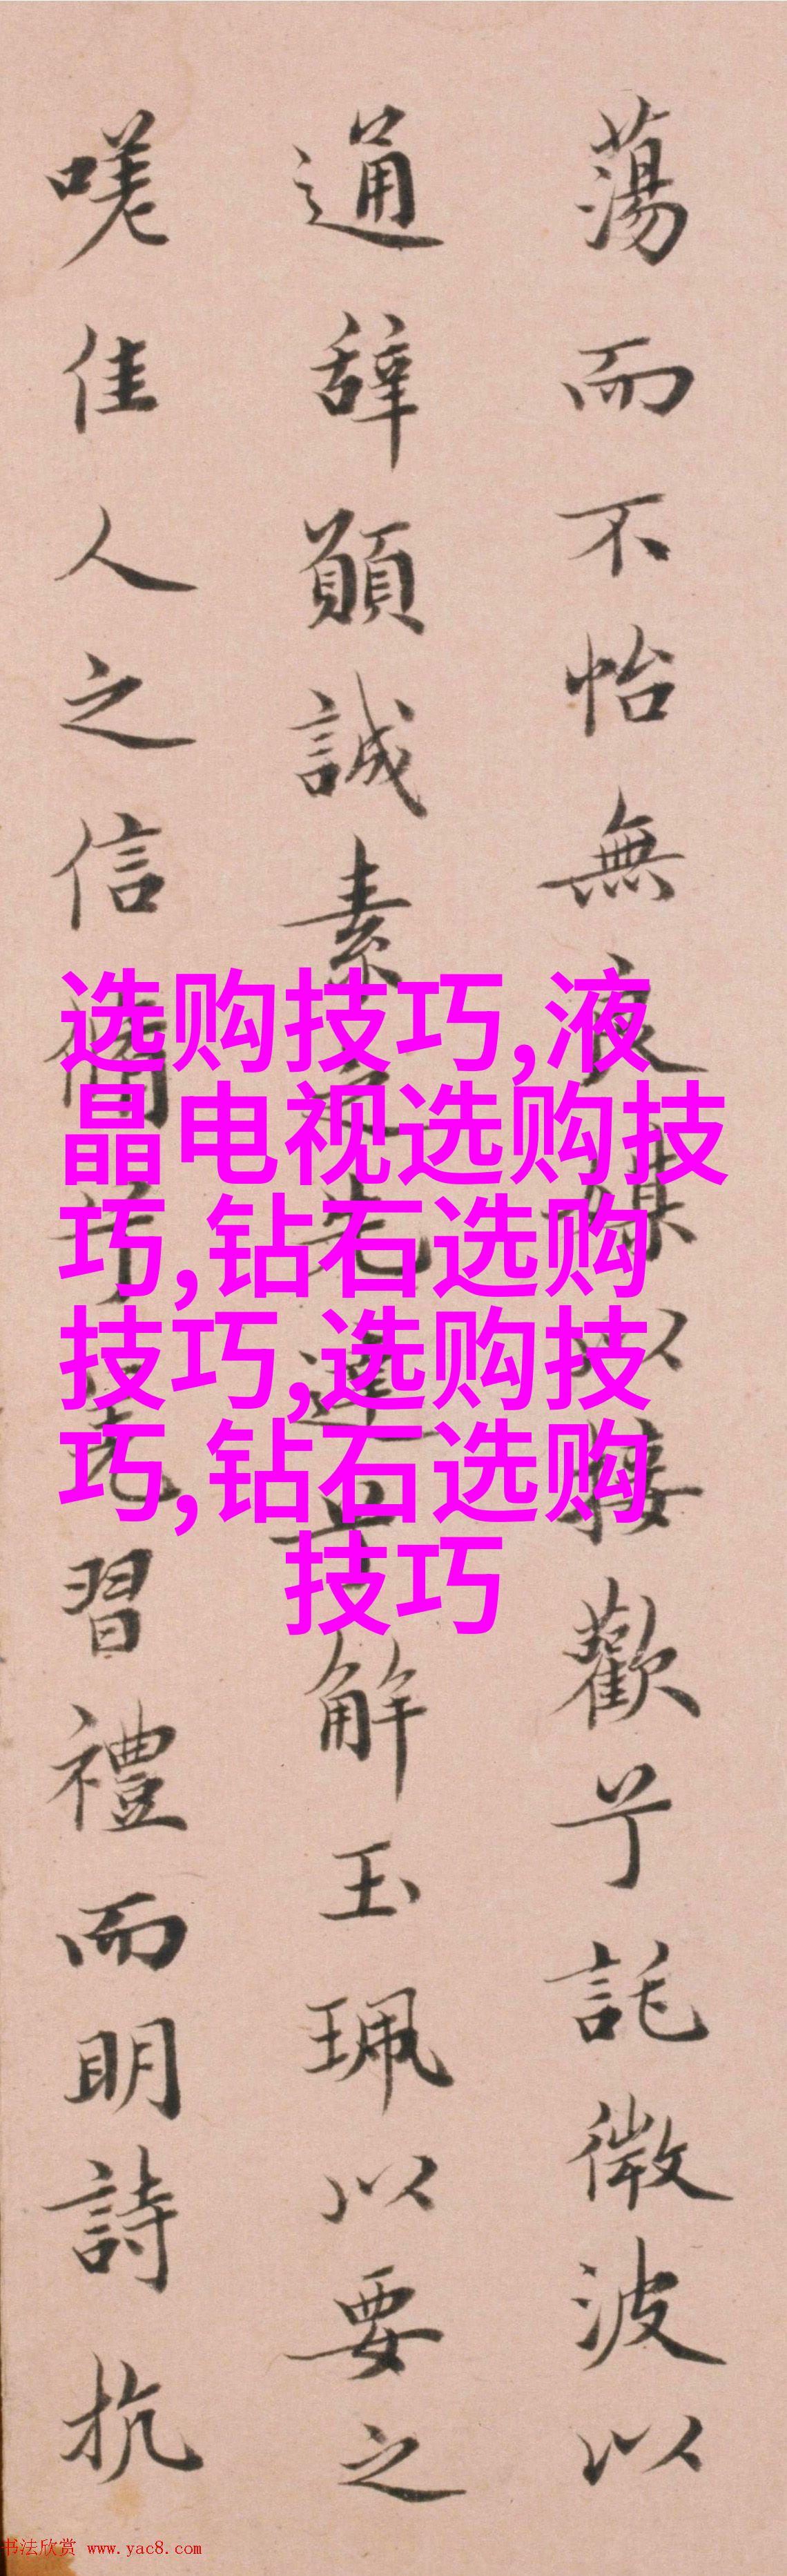 蕩而不怡無良媒以接歡兮託微波以
通辭願誠素之先達兮解玉珮以要之
嗟佳人之信脩兮羌習禮而明詩抗
选购技巧,液
晶电视选购技
巧,钻石选购
技巧,选购技
巧,钻石选购
技巧
书法欣赏 www.yac8.com